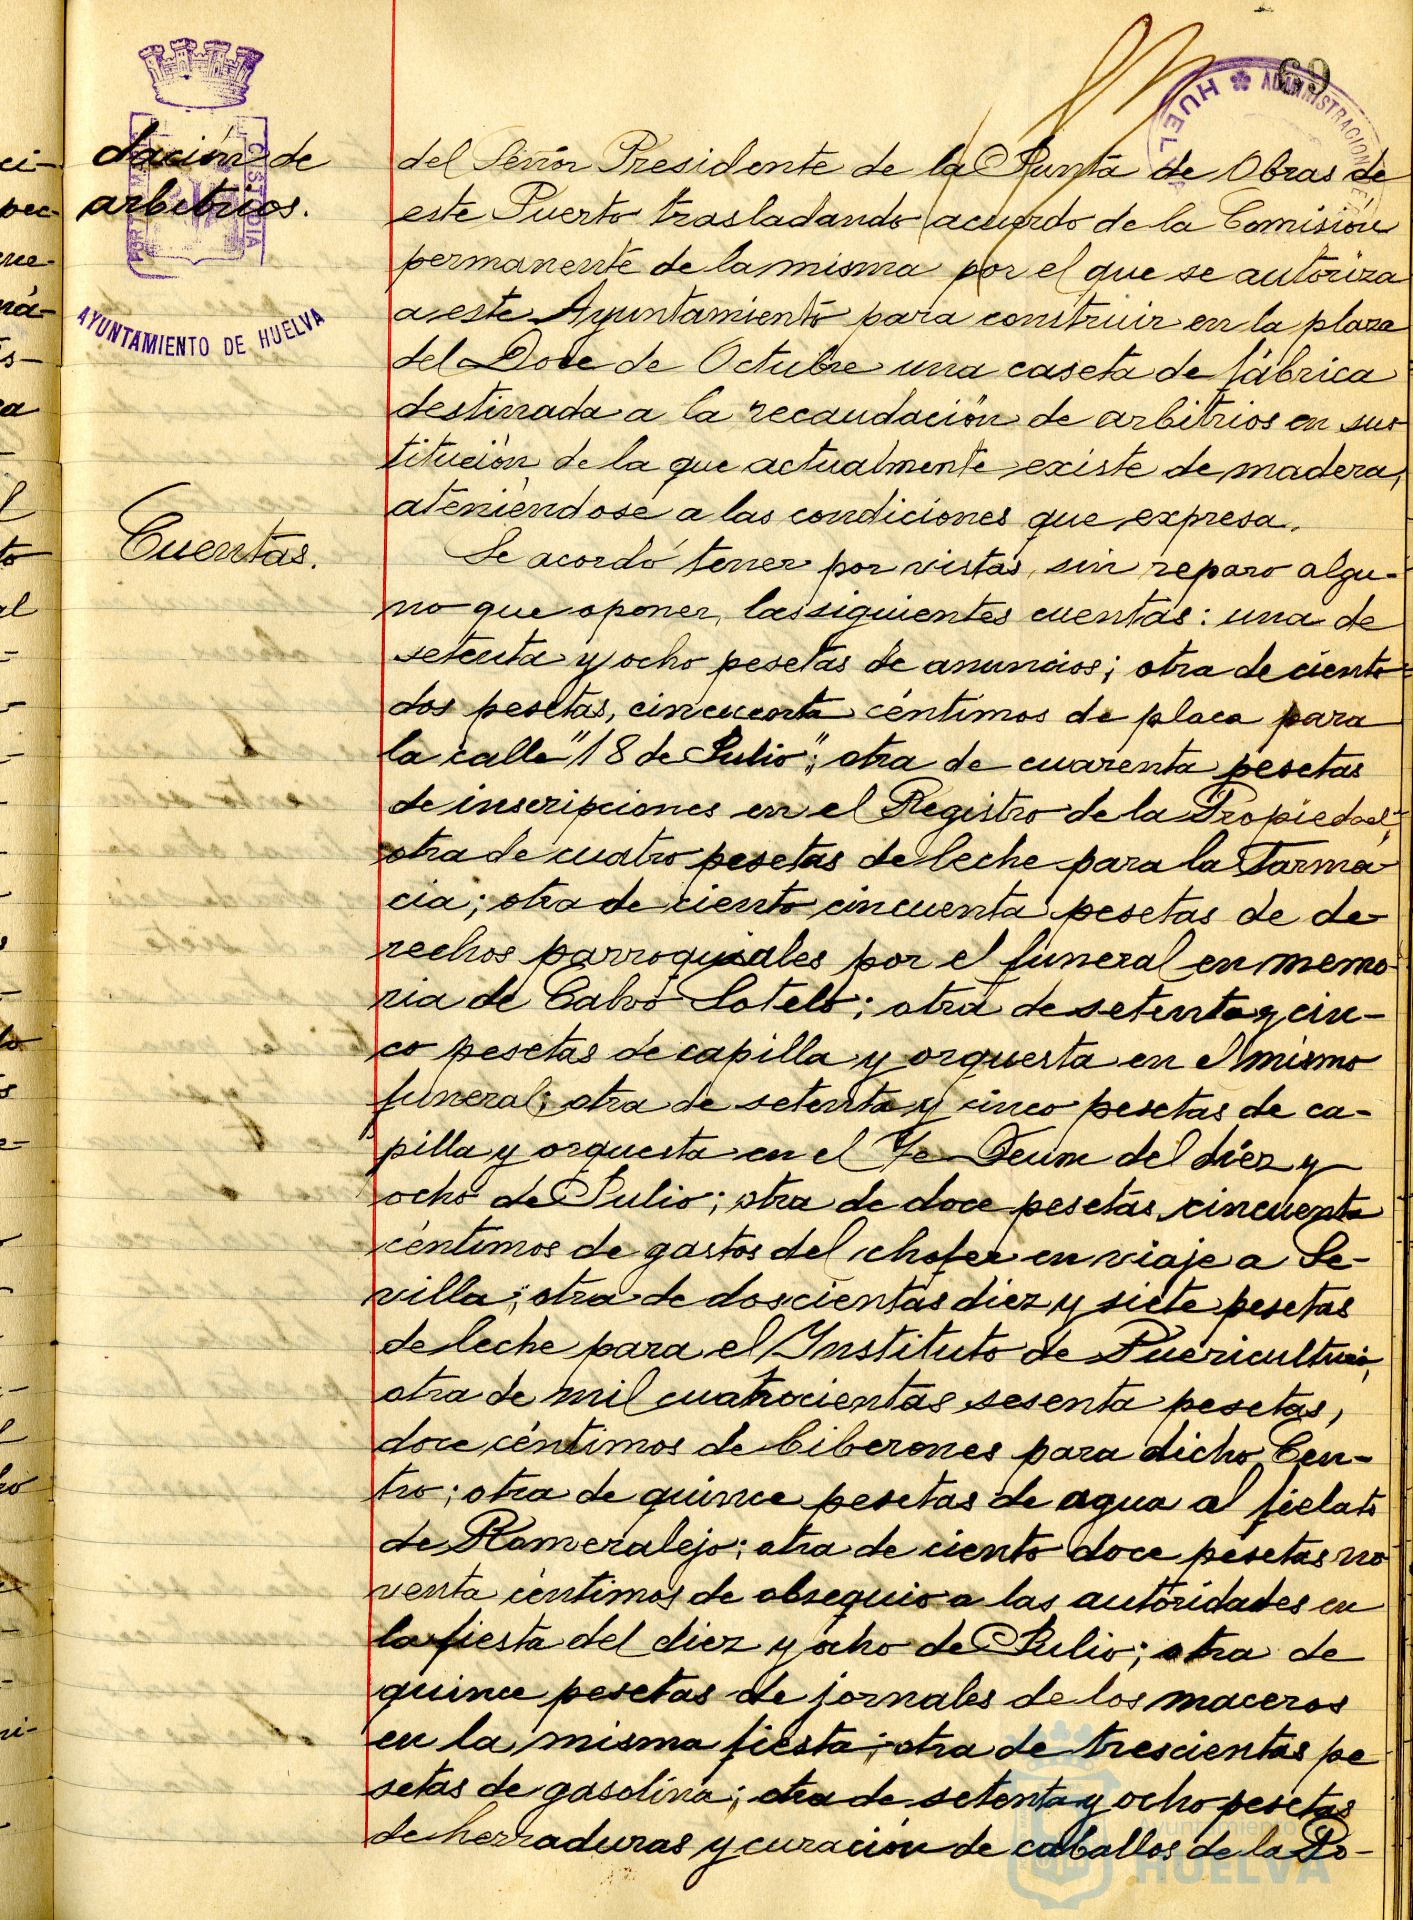 69
HUELVA ADMINISTRACION DE
dación de
arbitrios.
AYUNTAMIENTO DE HUELVA
del Señor Presidente de la Junta de Obras de
este Puerto trasladando acuerdo de la Comisión
permanente de la misma por el que se autoriza
a este Ayuntamiento para construir en la plaza
del Doce de Octubre una caseta de fábrica
destinada a la recaudación de arbitrios en sus
titución de la que actualmente existe de madera,
ateniéndose a las condiciones que expresa.
Cuentas.
Se acordó tener por vistas, sin reparo algu-
no que oponer, las siguientes cuentas: una de
setenta y ocho pesetas de anuncios; otra de ciento
dos pesetas, cincuenta céntimos de placa para
la calle "18 de Julio"; otra de cuarenta pesetas
de inscripciones en el Registro de la Propiedad;
otra de cuatro pesetas de leche para la Farma-
cia; otra de ciento cincuenta pesetas de de-
rechos parroquiales por el funeral en memo-
ria de Calvo Sotelo; otra de setenta y cin-
co pesetas de capilla y orquesta en el mismo
funeral; otra de setenta y cinco pesetas de ca-
pilla y orquesta en el Te Deum del diez y
ocho de Julio; otra de doce pesetas, cincuenta
céntimos de gastos del chofer en viaje a Se-
villa; otra de doscientas diez y siete pesetas
de leche para el Instituto de Puericultura;
otra de mil cuatrocientas sesenta pesetas,
doce céntimos de biberones para dicho Cen-
tro; otra de quince pesetas de agua al fielato
de Romeralejo; otra de ciento doce pesetas no
venta céntimos de obsequio a las autoridades en
la fiesta del diez y ocho de Julio; otra de
quince pesetas de jornales de los maceros
en la misma fiesta; otra de trescientas pe
setas de gasolina; otra de setenta y ocho pesetas
de herraduras y curación de caballos de la Po-
Ayuntamiento
HUELVA